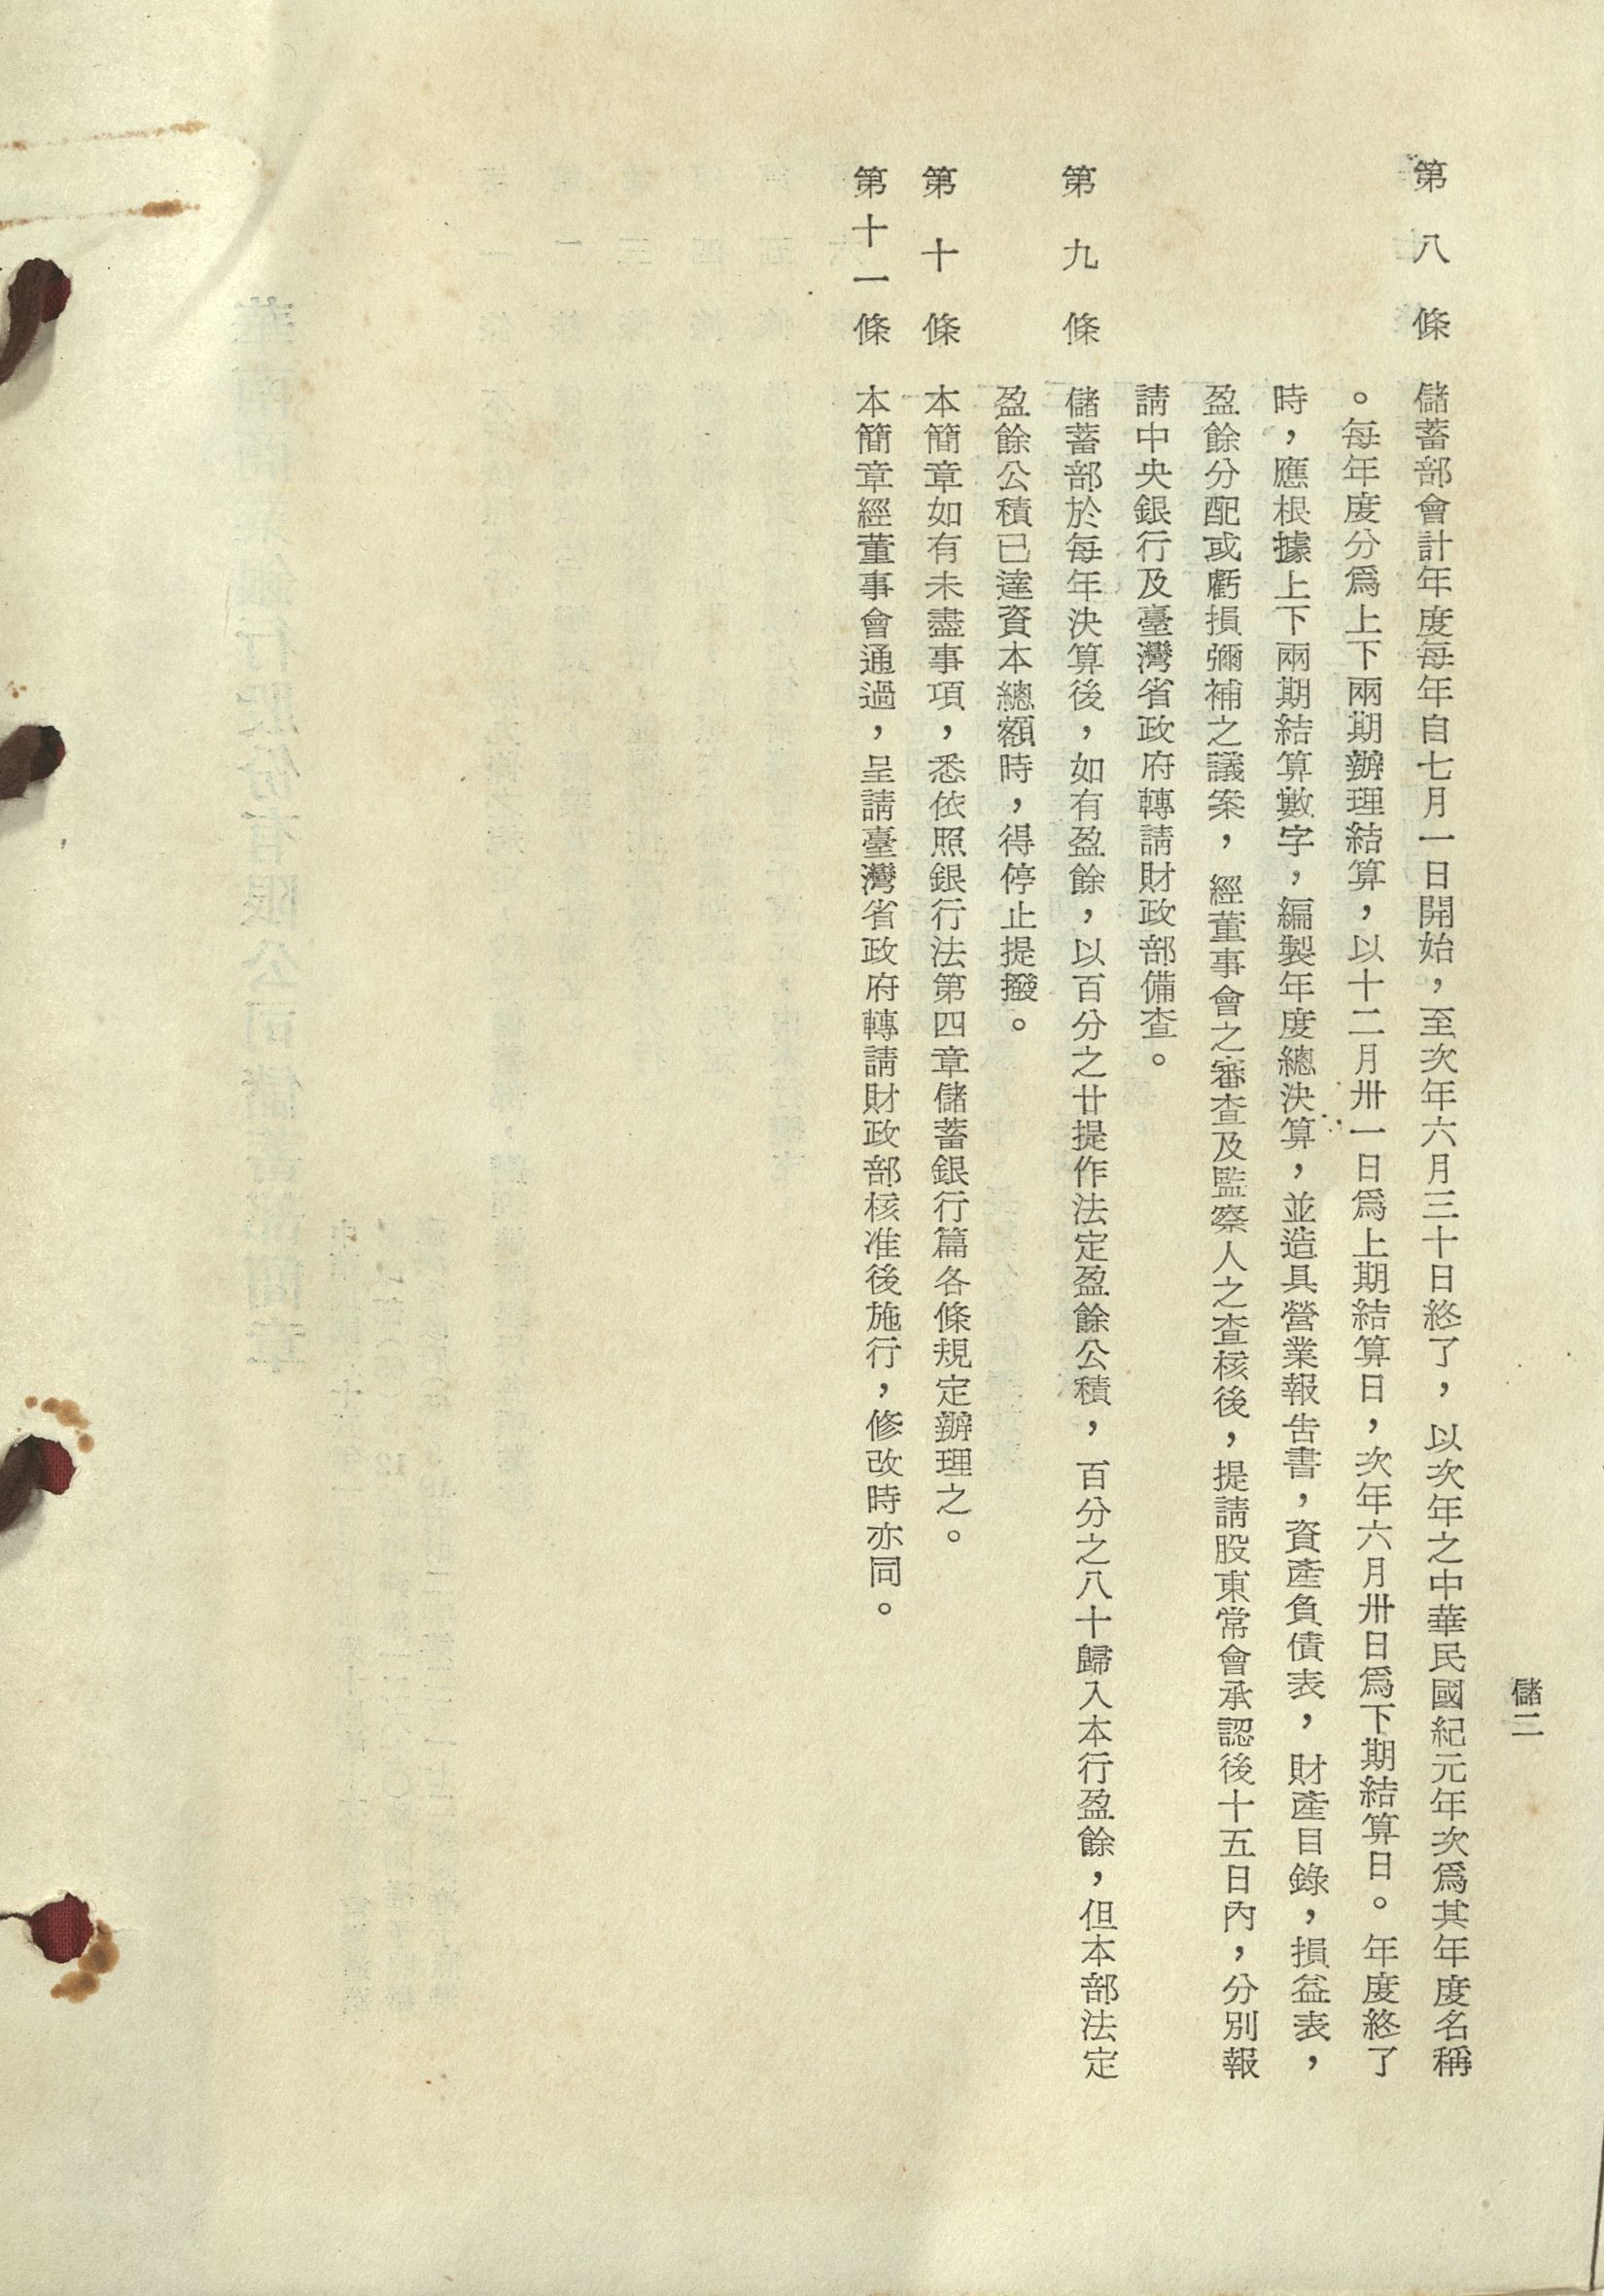 儲二
第八條　儲蓄部會計年度每年自七月一日開始，至次年六月三十日終了，以次年之中華民國紀元年次爲其年度名稱
。每年度分爲上下兩期辦理結算，以十二月卅一日爲上期結算日，次年六月卅日爲下期結算日。年度終了
時，應根據上下兩期結算數字，編製年度總決算，並造具營業報告書，資產負債表，財產目錄，損益表，
盈餘分配或虧損彌補之議案，經董事會之審查及監察人之查核後，提請股東常會承認後十五日內，分別報
請中央銀行及臺灣省政府轉請財政部備查。
第九條　儲蓄部於每年決算後，如有盈餘，以百分之廿提作法定盈餘公積，百分之八十歸入本行盈餘，但本部法定
盈餘公積已達資本總額時，得停止提撥。
第十條　本簡章如有未盡事項，悉依照銀行法第四章儲蓄銀行篇各條規定辦理之。
第十一條　本簡章經董事會通過，呈請臺灣省政府轉請財政部核准後施行，修改時亦同。